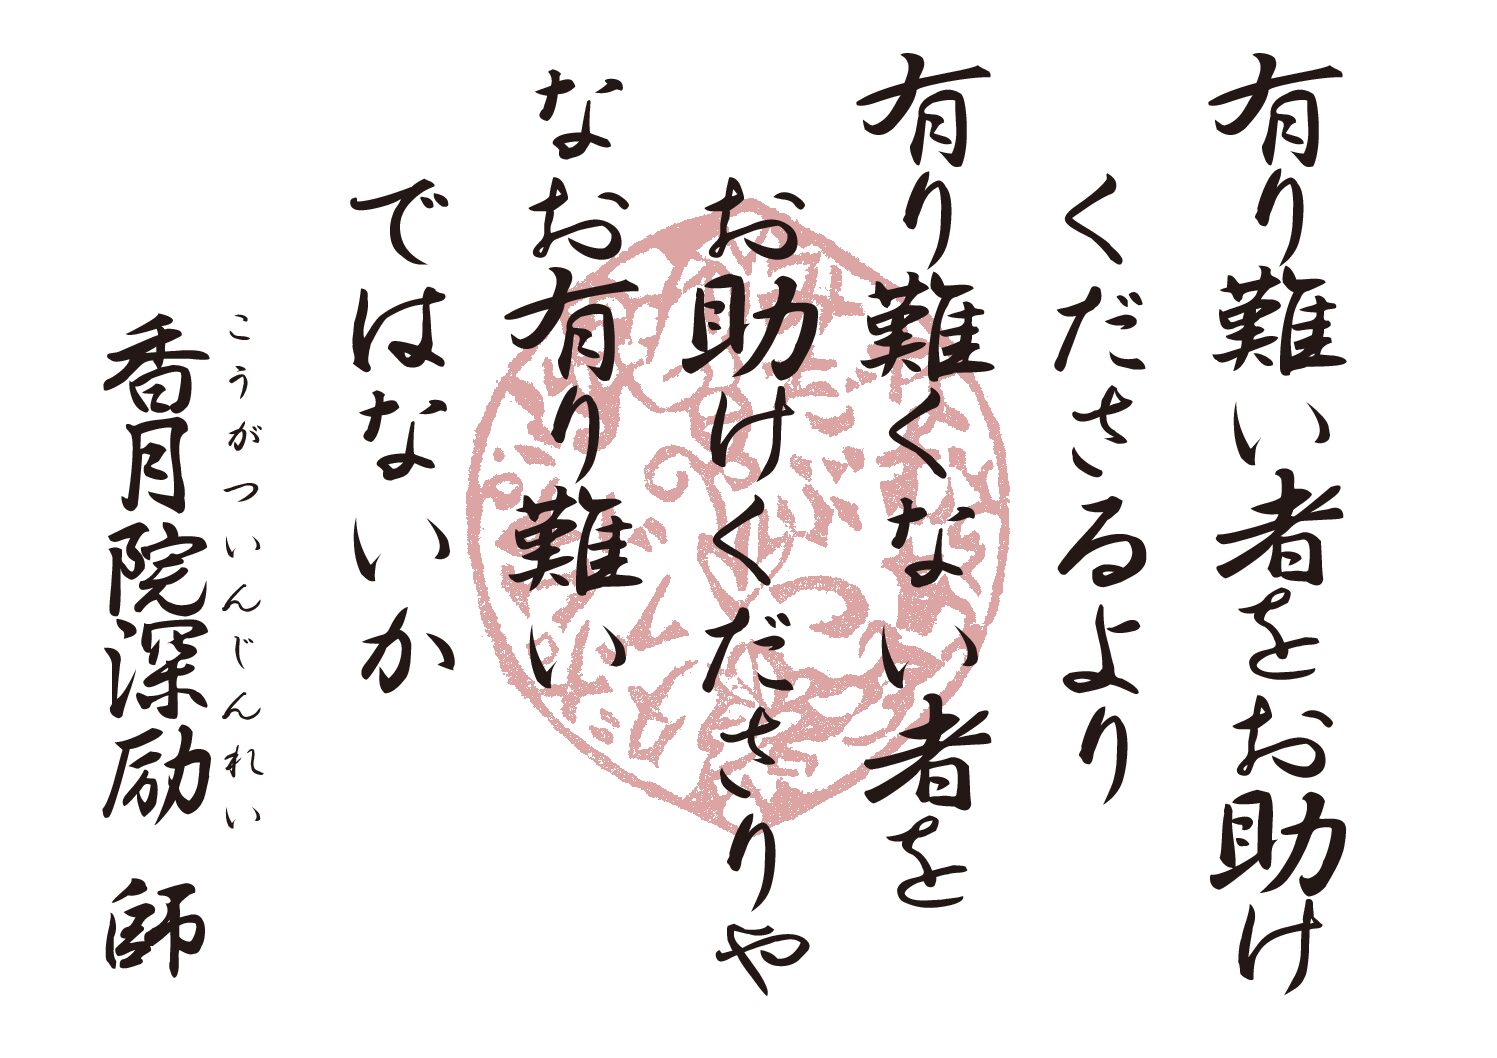 有り難い者をお助け
くださるより
有り難くない者を
お助けくださりや
なお有り難い
ではないか
こうがついんじんれい
香月院深励 師